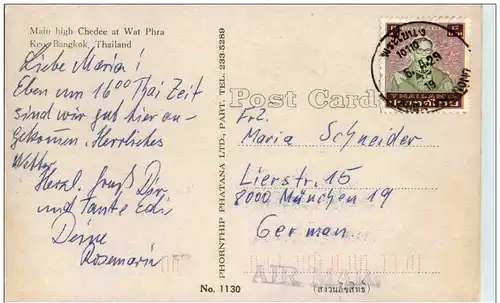 Main high Chedee at Wat Phra
Keo, Bangkok, Thailand
Liebe Maria!
Eben um 16⁰⁰ Thai Zeit
sind wir gut hier an-
gekommen. Herrliches
Wetter.
Herzl. Gruß Dir
und Tante Edi
Deine
Rosemarie
PHORNTHIP PHATANA LTD., PART. TEL. 233-5289
No. 1130
Post Card
THAILAND
Frl.
Maria Schneider
Lierstr. 15
8000 München 19
German
AIR MAIL
(สงวนลิขสิทธิ์)